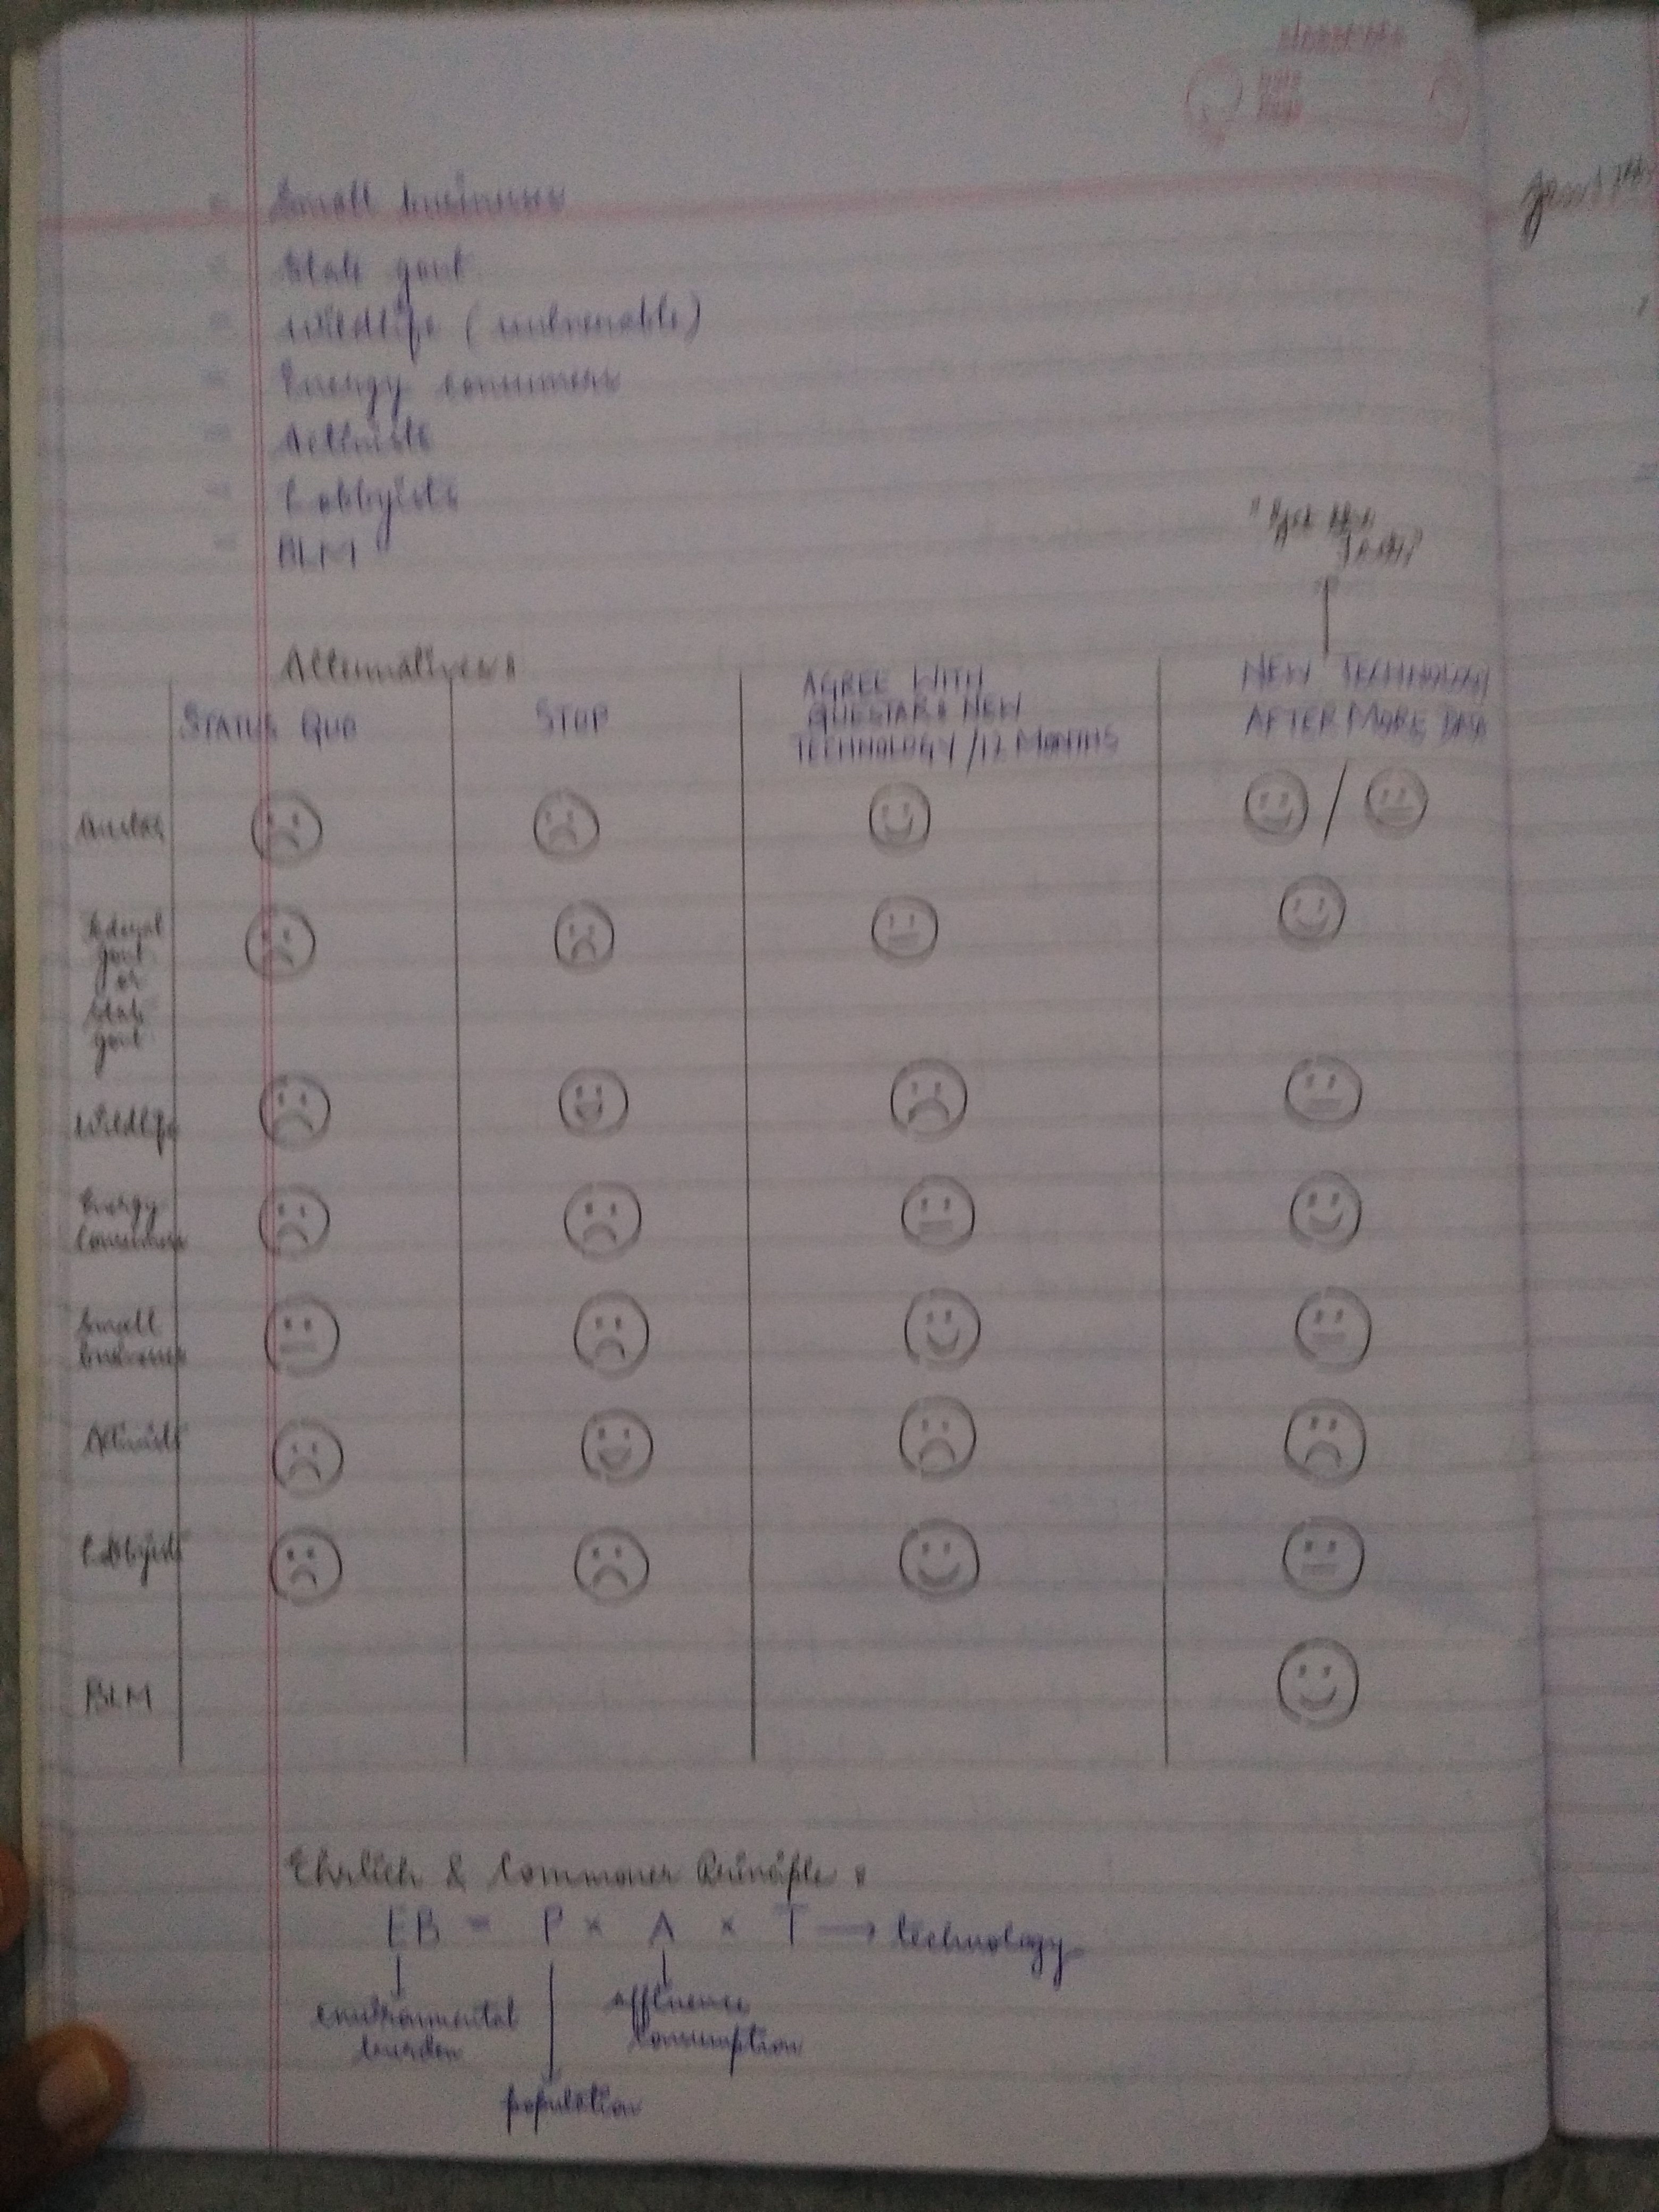 - Small businesses
- State govt
- Wildlife (vulnerable)
- Energy consumers
- Activists
- Lobbyists
- BLM
Alternatives:
STATUS QUO
STOP
AGREE WITH
QUESTAR & NEW
TECHNOLOGY / 12 MONTHS
NEW TECHNOLOGY
AFTER MORE DATA
Federal
govt
or
State
govt
Wildlife
Energy
Consumers
Small
businesses
Activists
Lobbyists
BLM
Ehrlich & Commoner Principle:
EB = P × A × T → technology
environmental
burden
affluence
consumption
population